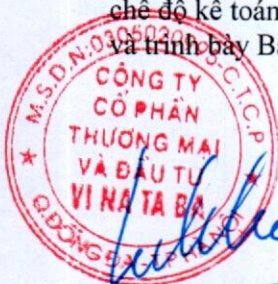 chế độ kế toán
và trình bày Bá
M.S.D.N:
C.T.C.P
CÔNG TY
CỔ PHẦN
THƯƠNG MẠI
VÀ ĐẦU TƯ
VI NA TA BA
Q.ĐỐNG ĐA